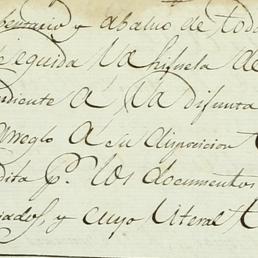 ventario y abaluo de todo
seguida la hijuela de
ndiente á la difunta
arreglo á su disposicion
dita p.r los documentos
iados, y cuyo literal t